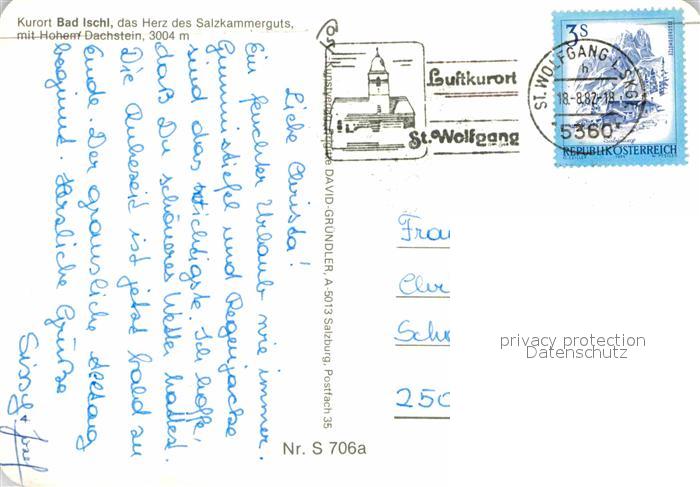 Kurort Bad Ischl, das Herz des Salzkammerguts,
mit Hohem Dachstein, 3004 m
Liebe Christa!
Ein feuchter Urlaub wie immer.
Gummistiefel und Regenjacke
sind das wichtigste. Ich hoffe,
daß Du schöneres Wetter hattest.
Die Ruhezeit ist jetzt bald zu
Ende. Der grausliche Alltag
beginnt. Herzliche Grüße
Sissy + Josef
DAVID-GRÜNDLER, A-5013 Salzburg, Postfach 35
Luftkurort
St. Wolfgang
3S
REPUBLIK ÖSTERREICH
ST. WOLFGANG I. SKGT.
h
18.-8.82-18
5360
Frau
Chr
Sch
250
privacy protection
Datenschutz
Nr. S 706a